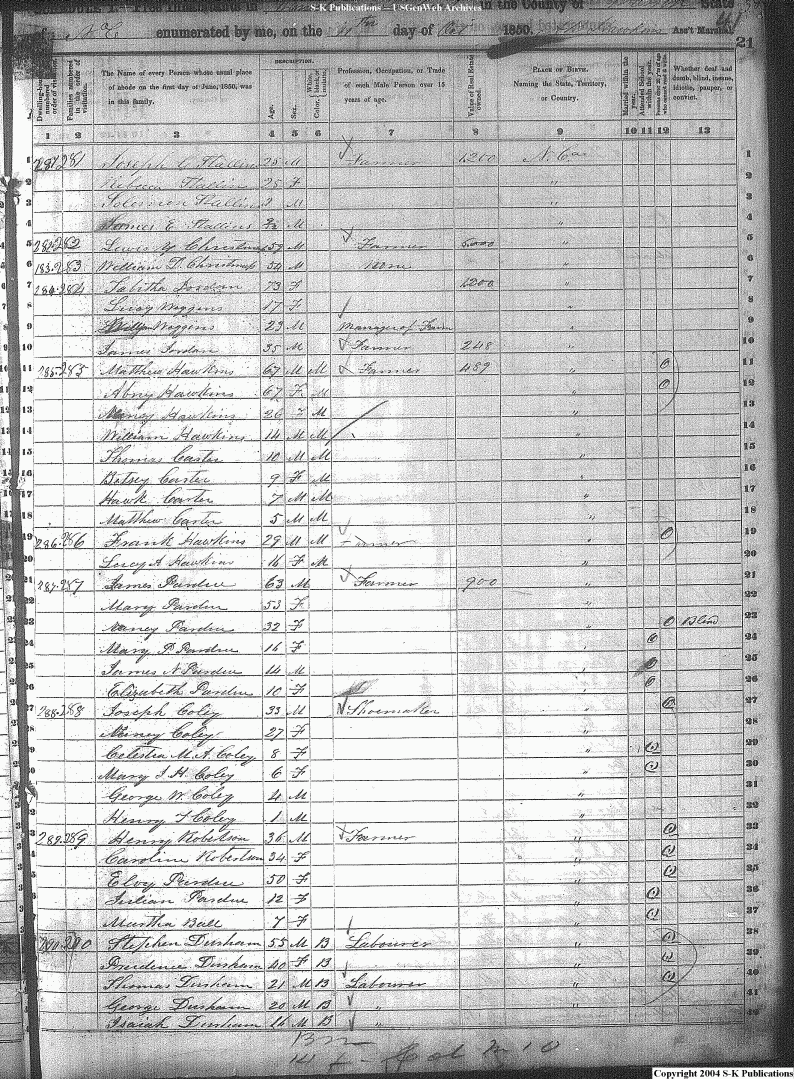 S-K Publications — USGenWeb Archives
in the County of State
enumerated by me, on the 11th day of Oct 1850. Ass't Marshal.
21
DESCRIPTION.
Dwelling-houses numbered in the order of visitation.
Families numbered in the order of visitation.
The Name of every Person whose usual place of abode on the first day of June, 1850, was in this family.
Age.
Sex.
Color, White, black, or mulatto.
Profession, Occupation, or Trade of each Male Person over 15 years of age.
Value of Real Estate owned.
PLACE OF BIRTH. Naming the State, Territory, or Country.
Married within the year.
Attended School within the year.
Whether deaf and dumb, blind, insane, idiotic, pauper, or convict.
1 2 3 4 5 6 7 8 9 10 11 12 13
1 281 281 Joseph C Hallins 25 M Farmer 1200 N. Car 1
2 Rebecca 25 F " 2
3 Solomon 2 M " 3
4 James E Hallins M " 4
5 282 282 Lewis Y Christmas 59 M Farmer " 5
6 183 283 William T. Christmas 54 M None " 6
7 284 284 Tabitha Jordan 73 F 1200 " 7
8 Lucy Woggens 17 F " 8
9 William Woggens 23 M Manager of Farm " 9
10 James Jordan 35 M Farmer 248 " 10
11 285 285 Matthew Hawkins 67 M M Farmer 489 " 11
12 Abney Hawkins 67 F M " 12
13 Nancy Hawkins 26 F M " 13
14 William Hawkins 14 M M " 14
15 Thomas Carter 10 M M " 15
16 Betsey Carter 9 F M " 16
17 Hawk Carter 7 M M " 17
18 Matthew Carter 5 M M " 18
19 286 286 Frank Hawkins 29 M M Farmer " 19
20 Lucy A Hawkins 16 F M " 20
21 287 287 James Pardue 63 M Farmer 900 " 21
22 Mary Pardue 53 F " 22
23 Nancy Pardue 32 F " Blind 23
24 Mary P. Pardue 16 F " 24
25 James N Pardue 14 M " 25
26 Elizabeth Pardue 10 F " 26
27 288 288 Joseph Coley 33 M Shoemaker " 27
28 Nancy Coley 27 F " 28
29 Celestia M. A. Coley 8 F " 29
30 Mary J. H. Coley 6 F " 30
31 George W. Coley 4 M " 31
32 Henry T Coley 1 M " 32
33 289 289 Henry Robertson 36 M Farmer " 33
34 Caroline Robertson 34 F " 34
35 Elvy Pardue 50 F " 35
36 Julian Pardue 12 F " 36
37 Martha Ball 7 F " 37
38 290 290 Stephen Durham 55 M B Labourer " 38
39 Prudence Durham 40 F B " 39
40 Thomas Durham 21 M B Labourer " 40
41 George Durham 20 M B " " 41
42 Isaiah Durham 16 M B " " 42
Copyright 2004 S-K Publications